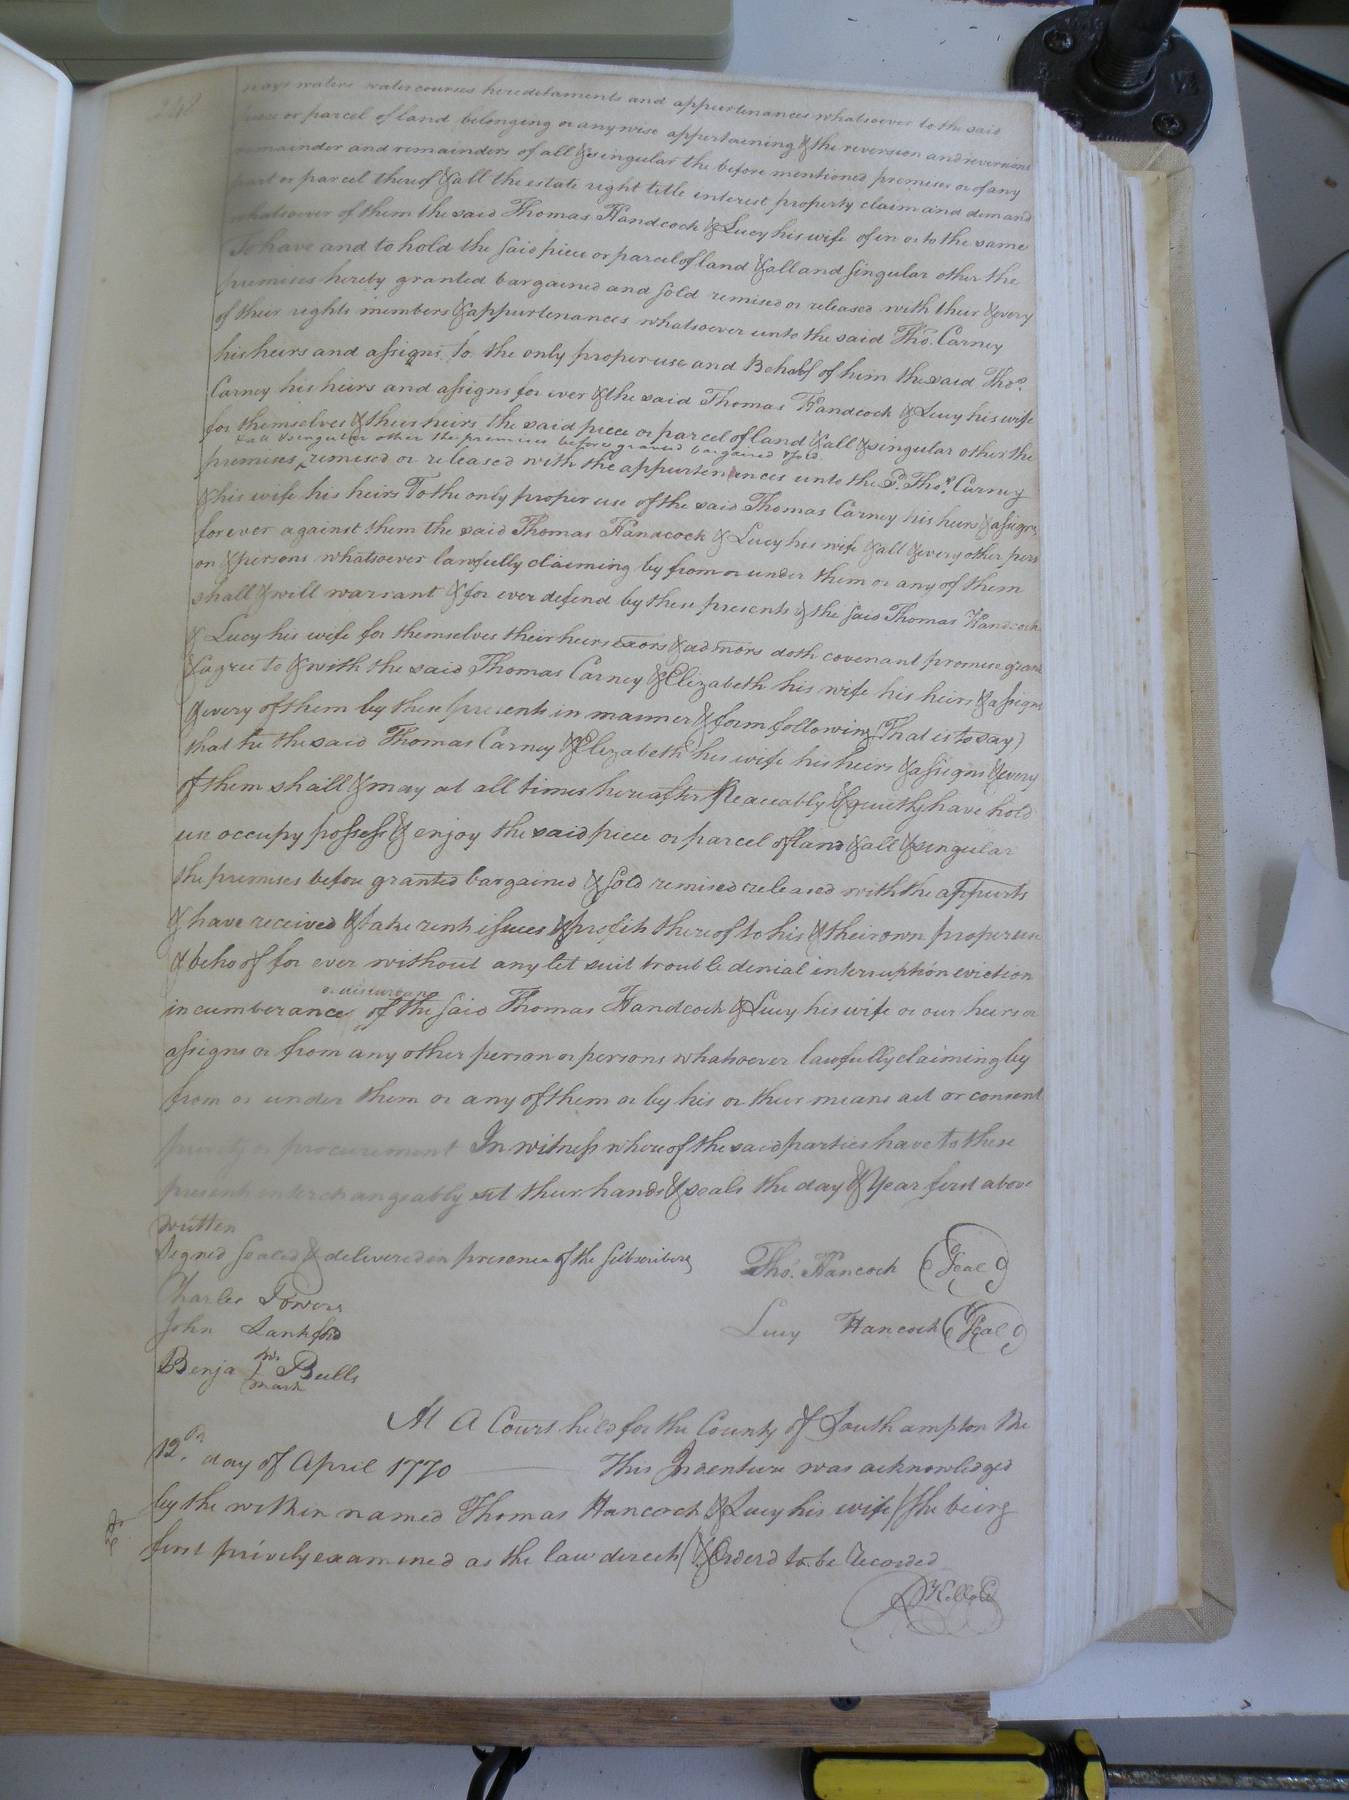 ways waters watercourses hereditaments and appurtenances whatsoever to the said
piece or parcel of land belonging or any wise appertaining & the reversion and reversions
remainder and remainders of all & singular the before mentioned premises or of any
part or parcel thereof & all the estate right title interest property claim and demand
whatsoever of them the said Thomas Handcock & Lucy his wife of in or to the same
To have and to hold the said piece or parcel of land & all and singular other the
premises hereby granted bargained and sold remised or released with their & every
of their rights members & appurtenances whatsoever unto the said Tho. Carney
his heirs and assigns to the only proper use and Behalf of him the said Tho.s
Carney his heirs and assigns for ever & the said Thomas Handcock & Lucy his wife
for themselves & their heirs the said piece or parcel of land & all & singular other the
& all & singular other the premises before granted bargained & sold
premises remised or released with the appurtenances unto the Sd. Tho.s Carney
& his wife his heirs To the only proper use of the said Thomas Carney his heirs & assigns
forever against them the said Thomas Handcock & Lucy his wife & all & every other pers
on & persons whatsoever lawfully claiming by from or under them or any of them
shall & will warrant & for ever defend by these presents & the said Thomas Handcock
& Lucy his wife for themselves their heirs exors & admors doth covenant promise grant
& agree to & with the said Thomas Carney & Elizabeth his wife his heirs & assigns
& every of them by these presents in manner & form following (That is to say)
that he the said Thomas Carney & Elizabeth his wife his heirs & assigns & every
of them shall & may at all times hereafter Peaceably & quietly have hold
use occupy possess & enjoy the said piece or parcel of land & all & singular
the premises before granted bargained & sold remised released with the appurts
& have received & take rents issues & profits thereof to his & their own proper use
& behoof for ever without any let suit trouble denial interruption eviction
or disturbance
incumberances of the said Thomas Handcock & Lucy his wife or our heirs or
assigns or from any other person or persons whatsoever lawfully claiming by
from or under them or any of them or by his or their means act or consent
privity or procurement In witness whereof the said parties have to these
presents interchangeably set their hands & seals the day & Year first above
written
Signed sealed & delivered in presence of the subscribers Tho.s Hancock (Seal)
Charles Powers
John Lankford Lucy Hancock (Seal)
Benja his mark Bulls
At A Court held for the County of Southampton the
12th. day of April 1770 This Indenture was acknowledged
by the within named Thomas Hancock & Lucy his wife (she being
first privily examined as the law directs) & Orderd to be Recorded